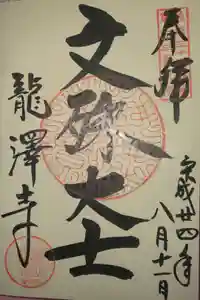 奉拝
平成廿四年
八月十一日
文殊大士
龍澤寺